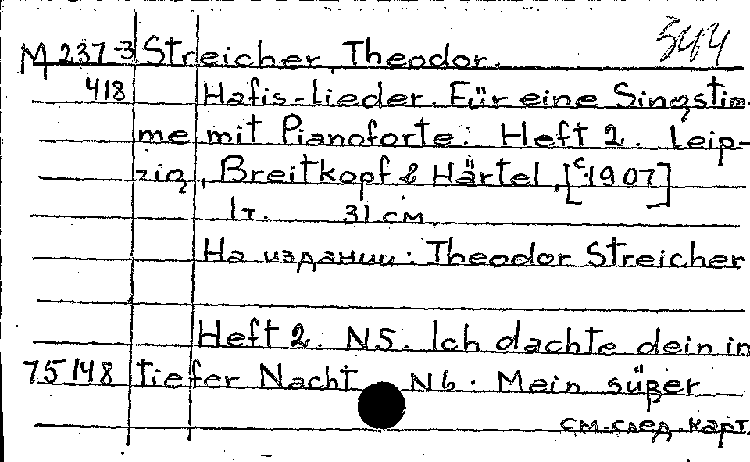 344
М 237-3 Streicher, Theodor.
418 Hafis-Lieder. Für eine Singstim-
me mit Pianoforte. Heft 2. Leip-
zig, Breitkopf & Härtel, [c 1907]
1 т. 31 см.
На издании: Theodor Streicher
Heft 2. N5. Ich dachte dein in
75148 tiefer Nacht N6. Mein süßer
см. след. карт.